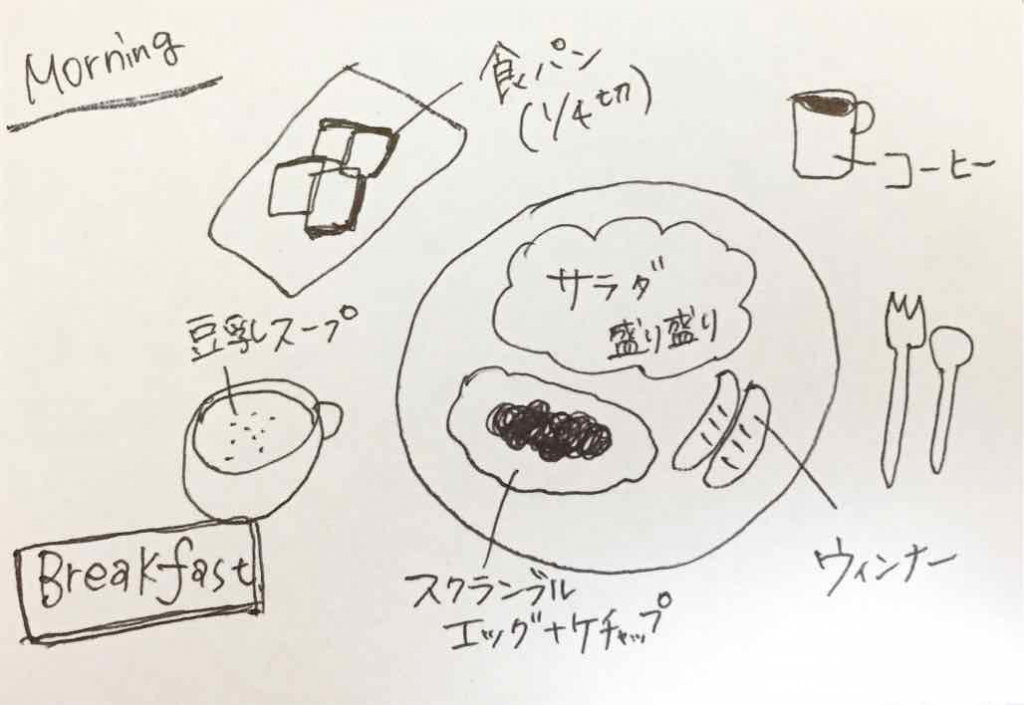 Morning
食パン
(1/4切)
コーヒー
サラダ
盛り盛り
豆乳スープ
Breakfast
スクランブル
エッグ+ケチャップ
ウィンナー